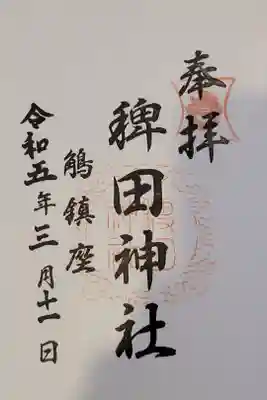 奉拝
稗田神社
鵤鎮座
令和五年三月十一日